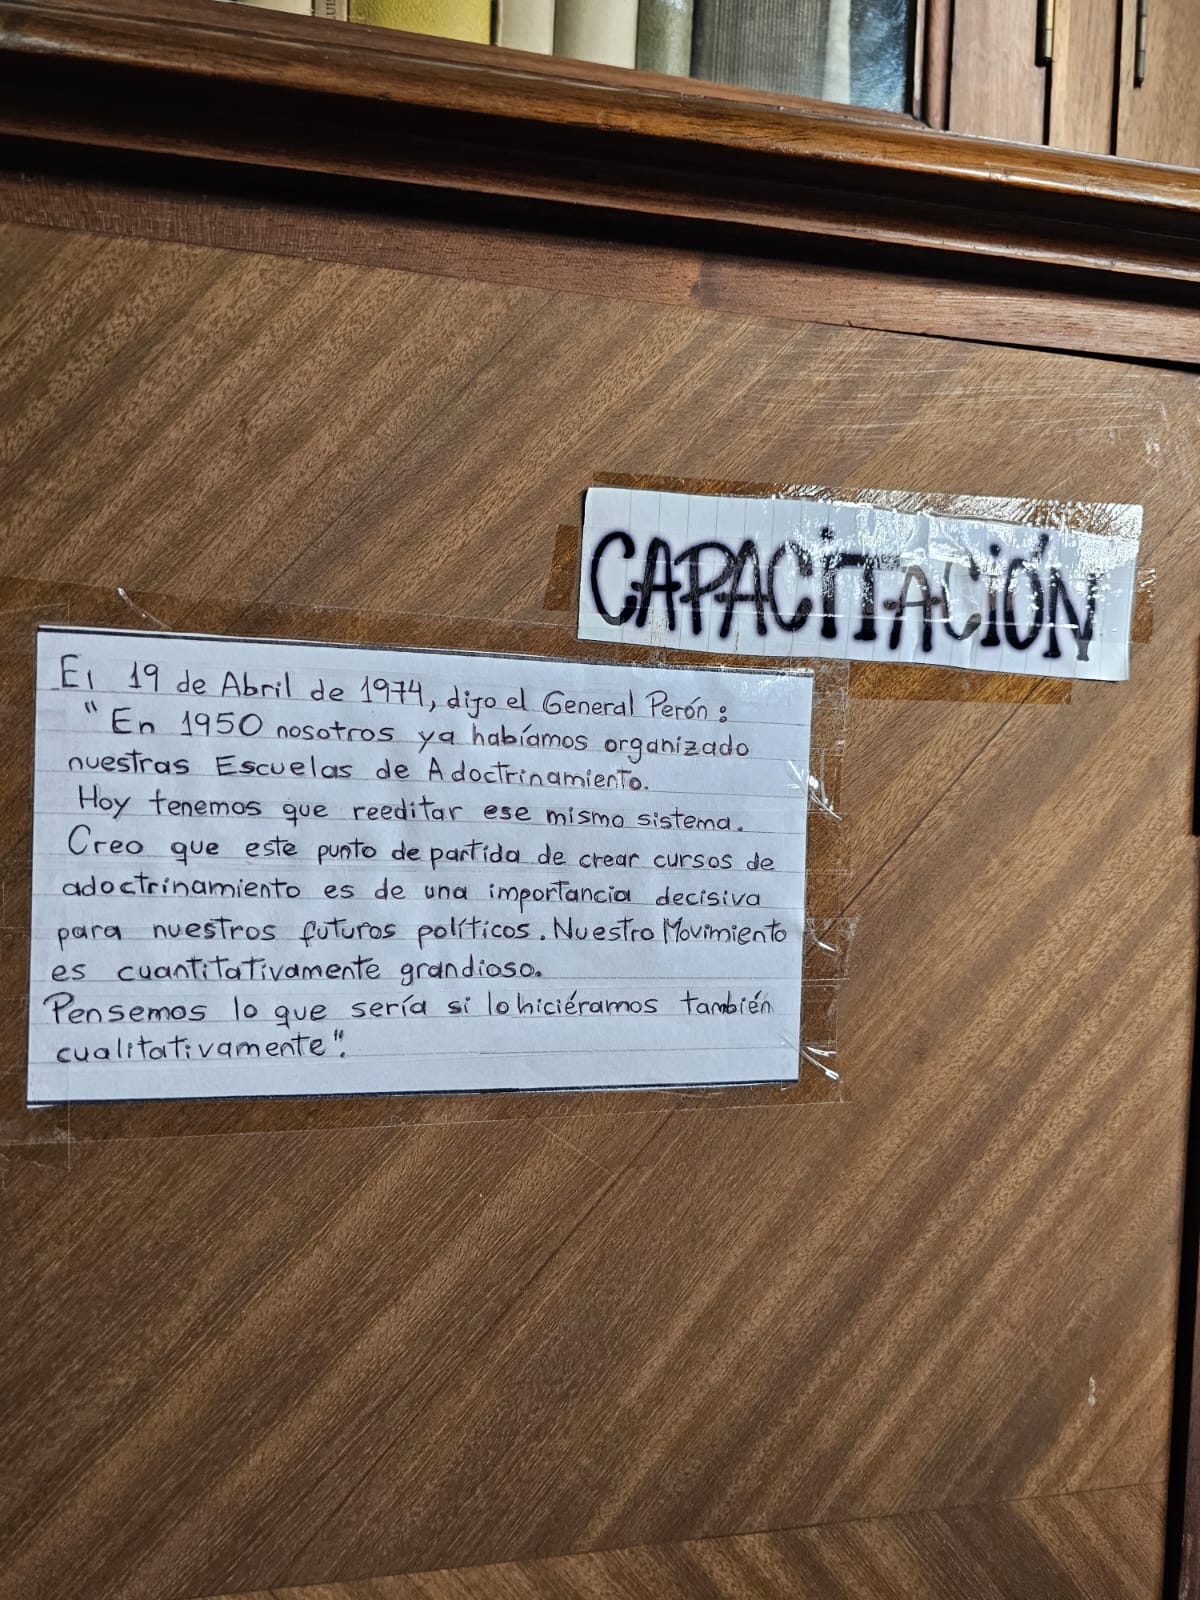 CAPACITACIÓN
El 19 de Abril de 1974, dijo el General Perón:
"En 1950 nosotros ya habíamos organizado
nuestras Escuelas de Adoctrinamiento.
Hoy tenemos que reeditar ese mismo sistema.
Creo que este punto de partida de crear cursos de
adoctrinamiento es de una importancia decisiva
para nuestros futuros políticos. Nuestro Movimiento
es cuantitativamente grandioso.
Pensemos lo que sería si lo hiciéramos también
cualitativamente".